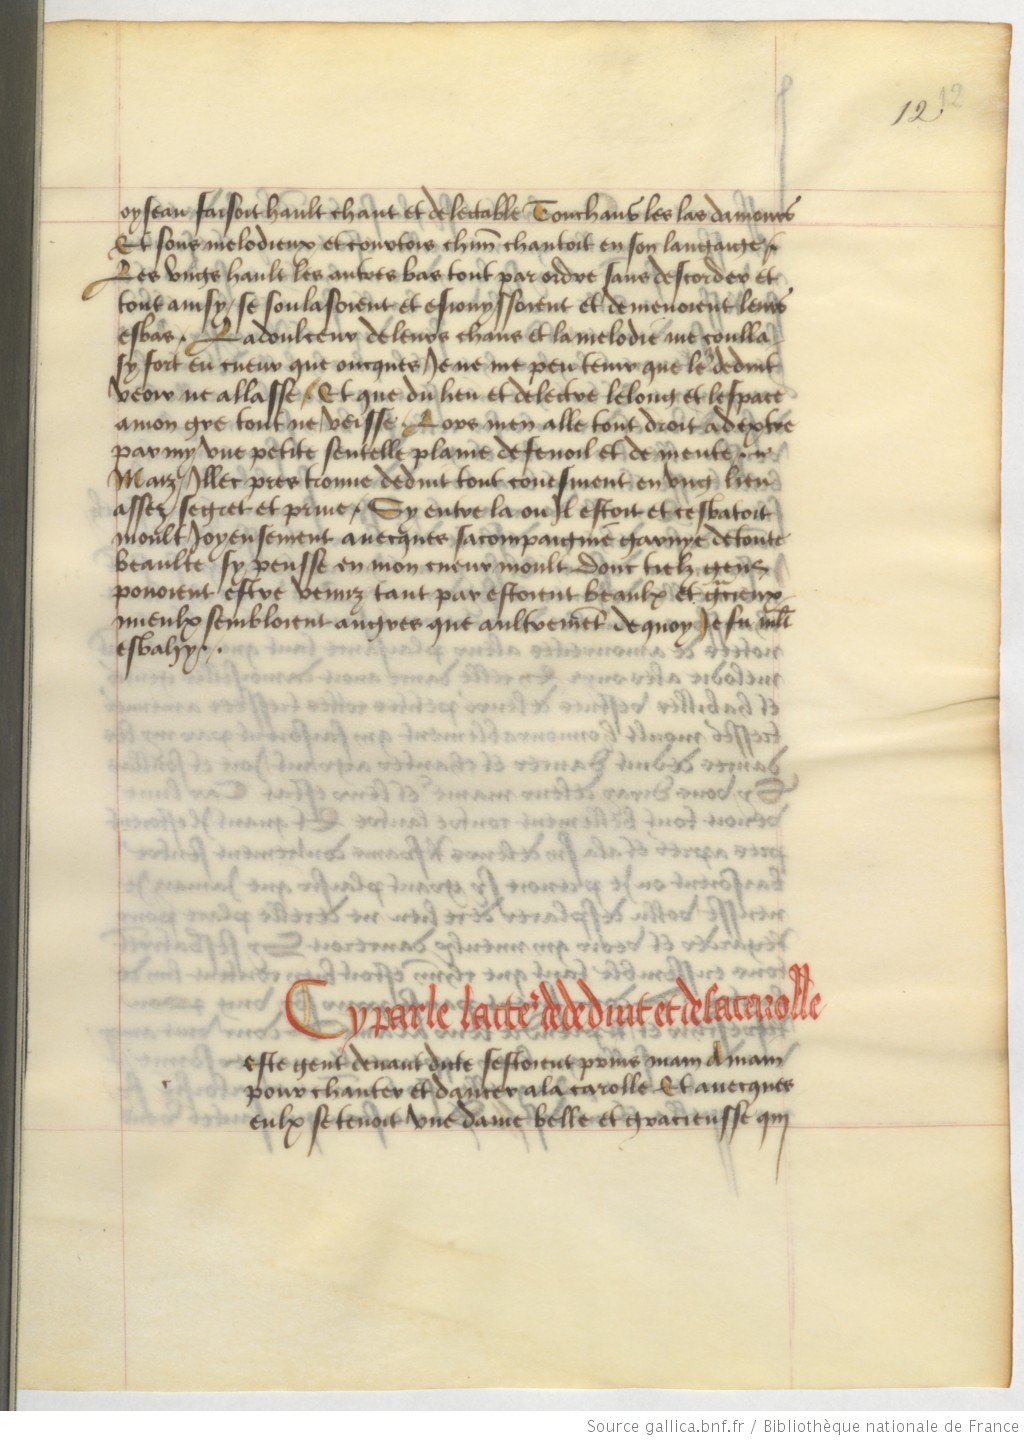 12 12
oyseau faisoit hault chant et delectable Touchans les las damours
Et sons melodieux et courtois chūn chantoit en son langaige /.
Les vngs hault les autres bas tout par ordre sans descorder et
tout ainsy / se soulasoient et esiouyssoient et demenoient leurs
esbas . La doulceur de leurs chans et la melodie me coulla
sy fort en cueur que oncques Je ne me peu tenir que le deduit
veoir ne allasse . Et que du lieu et de lectre le long et lespace
a mon gre tout ne veisse . Lors men alle tout droit a dextre
par my vne petite sentelle plaine de fenoil et de mente .
Maiz Illec pres trouue deduit tout coiesment en vng lieu
assez segret et priue . Sy entre la ou Il estoit et cesbatoit
moult Joyeusement auecques sa compaignie garnye de toute
beaulte sy pensse en mon cueur moult donc tielz gens
pouoient estre veniz tant par estoient beaulx et gracieux
mieulx sembloient angres que aultremēt de quoy Je fu mlt
esbahy . .
Cy parle lacteʳ de deduit et de sa carolle
este gent deuant dite sestoient prins main a main
pour chanter et dancer a la carolle Et auecques
eulx se tenoit vne dame belle et gracieusse qui
Source gallica.bnf.fr / Bibliothèque nationale de France